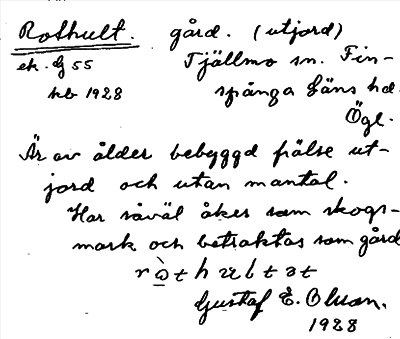 Rothult. gård. (utjord)
ek. bl 55 Tjällmo sn. Fin-
kb 1928 spånga läns hd.
Ögl.
Är av ålder bebyggd frälse ut-
jord och utan mantal.
Har såväl åker som skogs-
mark och betraktas som gård
Gustaf E. Olsson.
1928